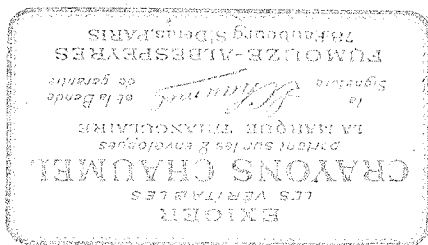 EXIGER
LES VÉRITABLES
CRAYONS CHAUMEL
portant sur les 2 enveloppes
LA MARQUE TRIANGULAIRE
la Signature Chaumel et la Bande de garantie
FUMOUZE-ALBESPEYRES
78, Faubourg St Denis, PARIS